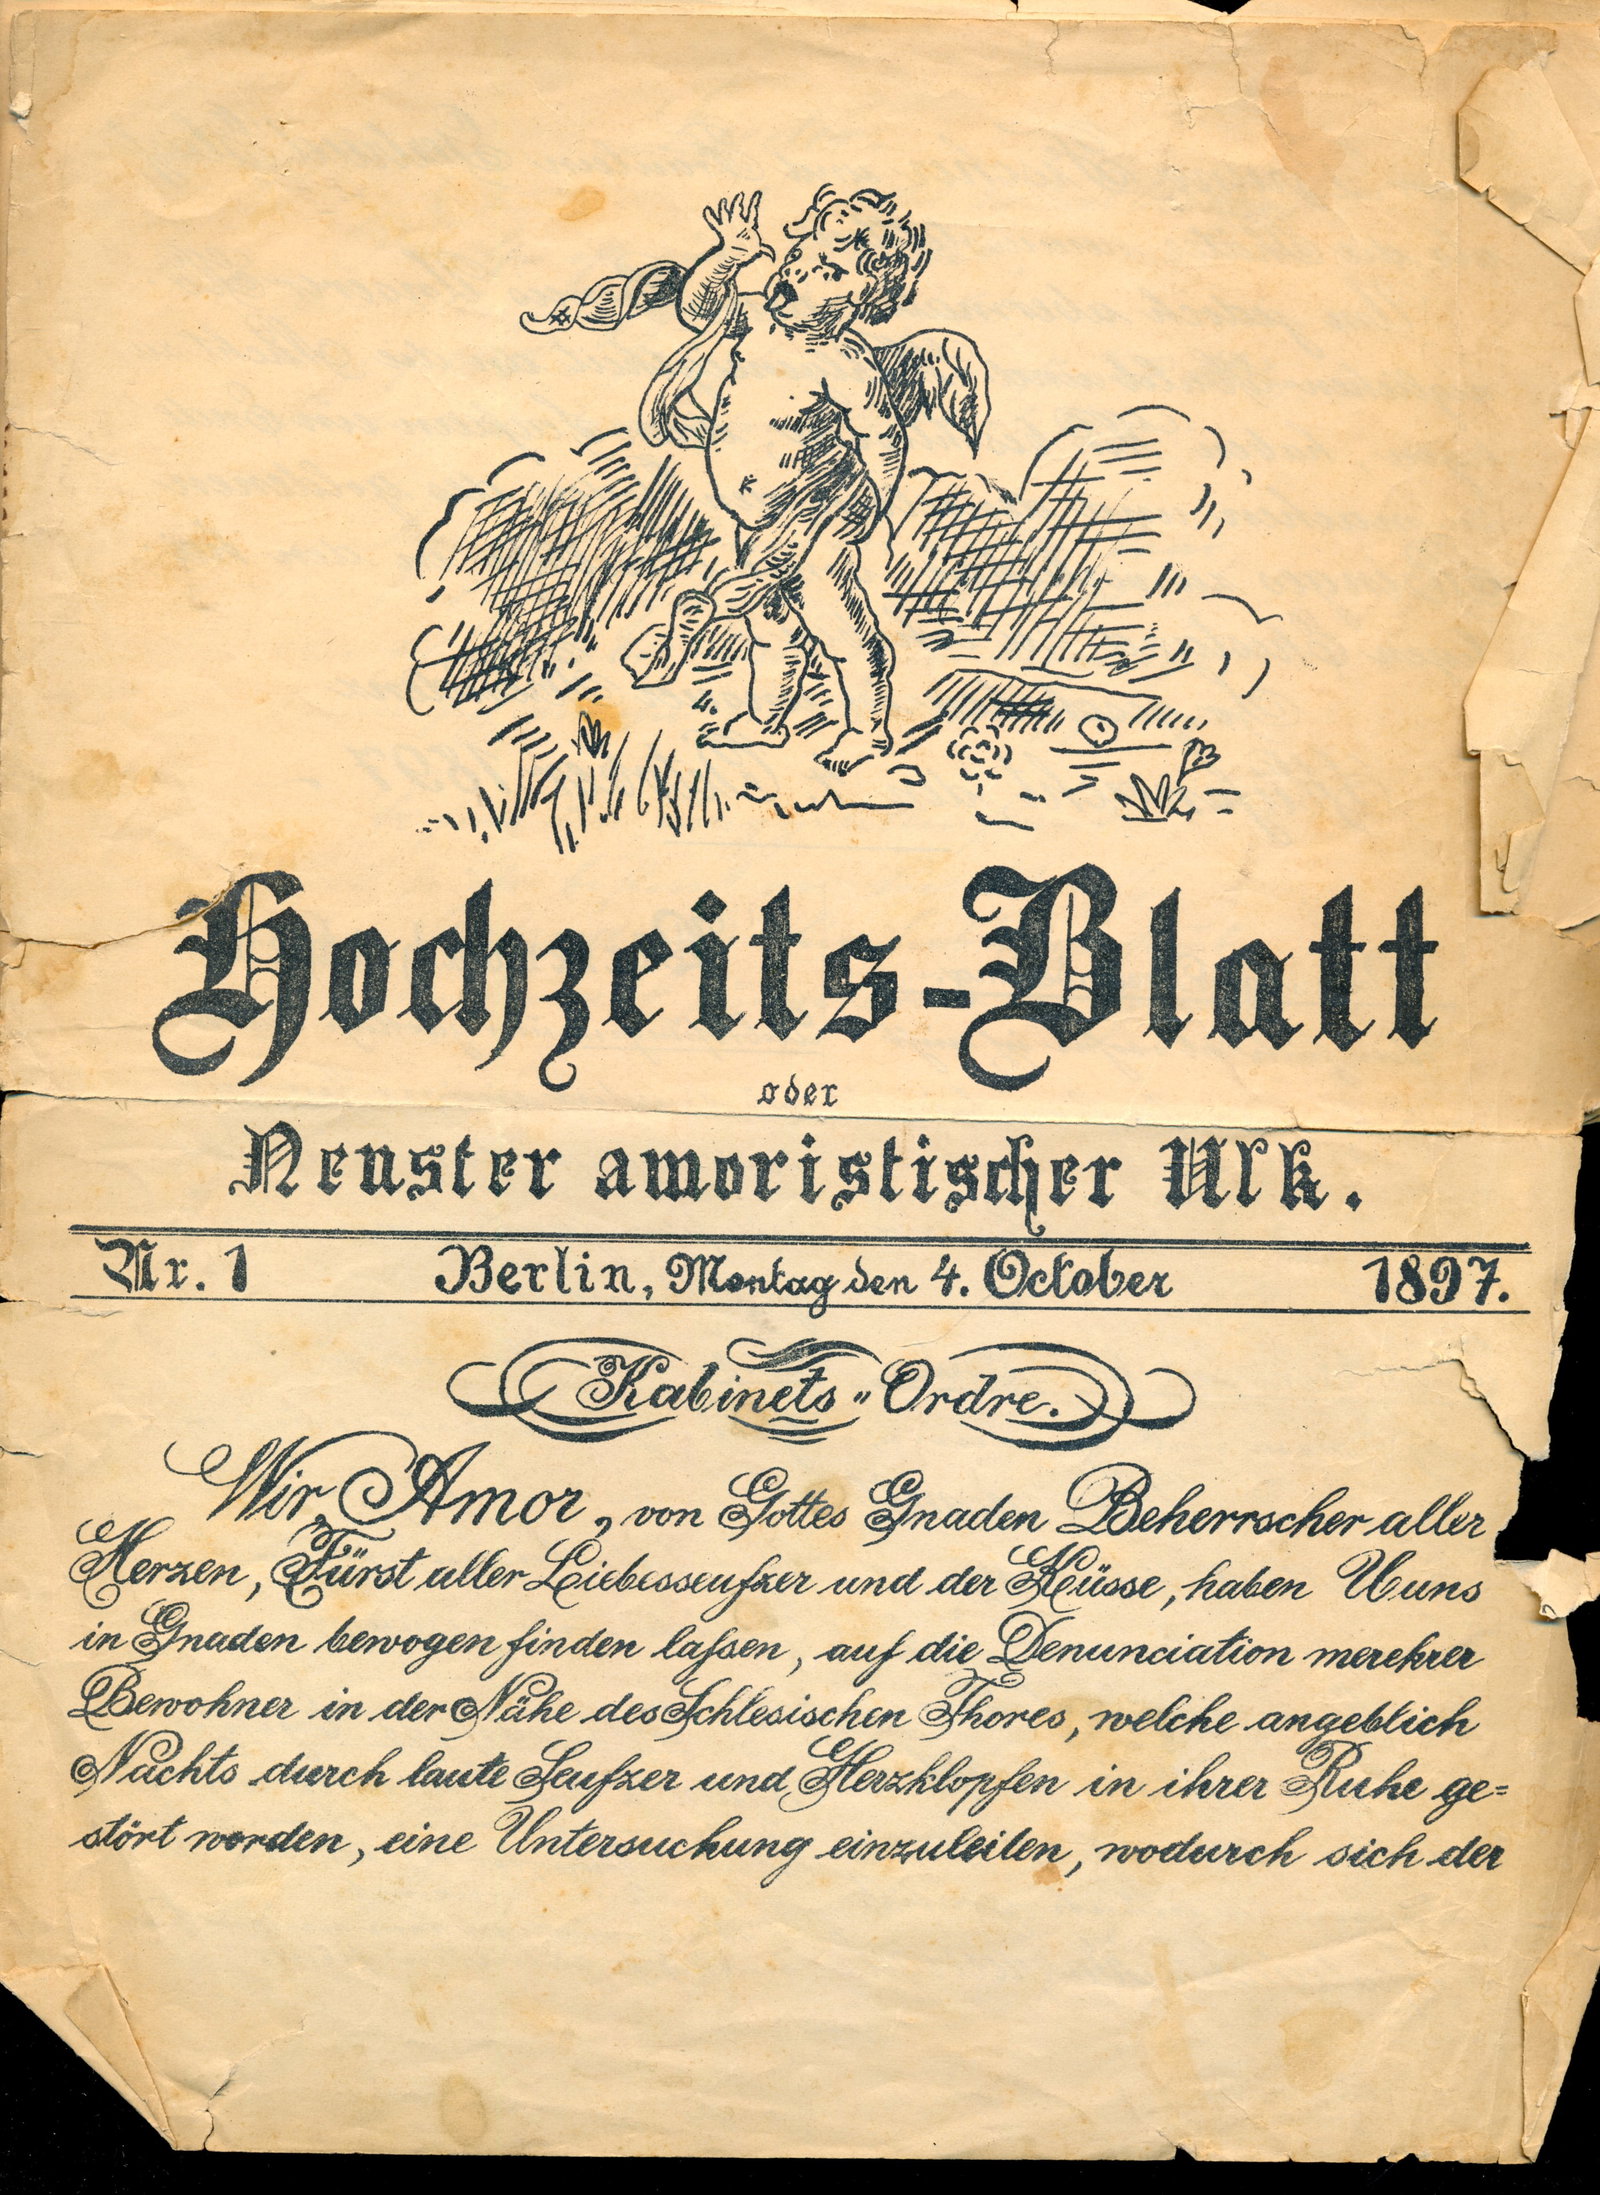 Hochzeits-Blatt
oder
Neuster amoristischer Ulk.
Nr. 1 Berlin, Montag den 4. October 1897.
Kabinets-Ordre.
Wir, Amor, von Gottes Gnaden Beherrscher aller
Herzen, Fürst aller Liebesseufzer und der Küsse, haben Uuns
in Gnaden bewogen finden lassen, auf die Denunciation merehrer
Bewohner in der Nähe des Schlesischen Thores, welche angeblich
Nachts durch laute Seufzer und Herzklopfen in ihrer Ruhe ge=
stört worden, eine Untersuchung einzuleiten, wodurch sich der